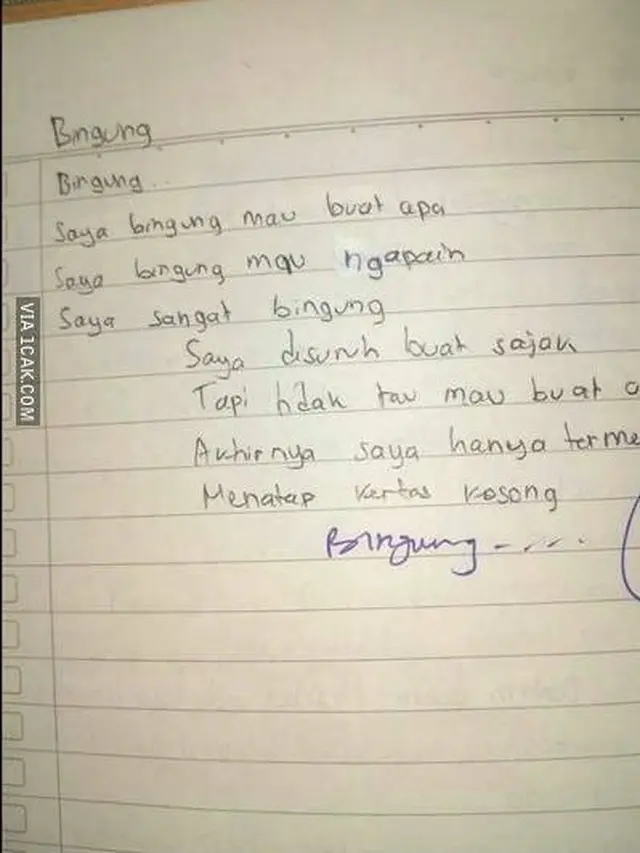 Bingung
Bingung...
Saya bingung mau buat apa
Saya bingung mau ngapain
Saya sangat bingung
Saya disuruh buat sajak
Tapi tidak tau mau buat a
Akhirnya saya hanya terme
Menatap kertas kosong
Bingung - . . . .
VIA 1CAK.COM